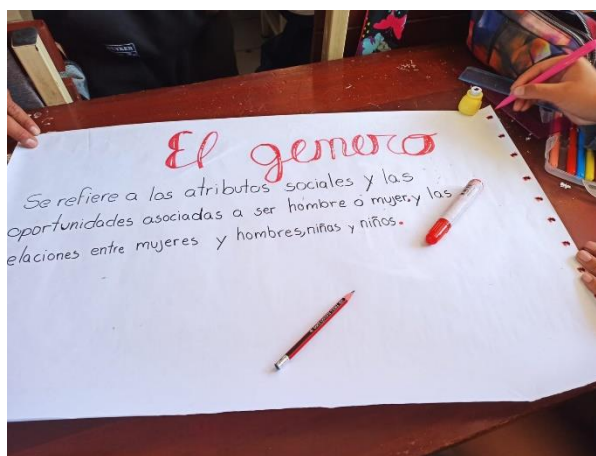 El genero
Se refiere a los atributos sociales y las
oportunidades asociadas a ser hombre o mujer, y las
elaciones entre mujeres y hombres, niñas y niños.